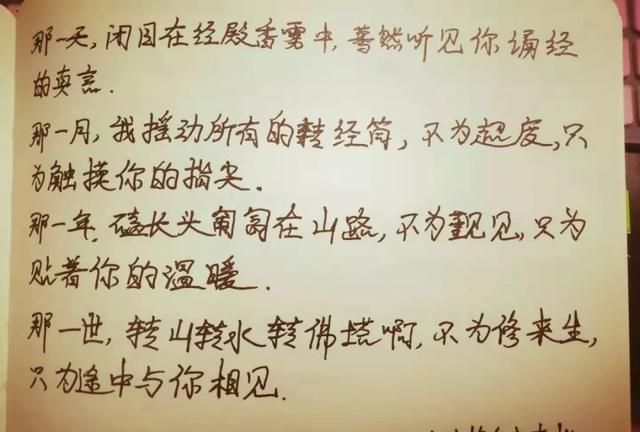 那一天,闭目在经殿香雾中,蓦然听见你诵经
的真言.
那一月,我摇动所有的转经筒,不为超度,只
为触摸你的指尖.
那一年.磕长头匍匐在山路,不为觐见,只为
贴着你的温暖.
那一世,转山转水转佛塔啊,不为修来生,
只为途中与你相见.